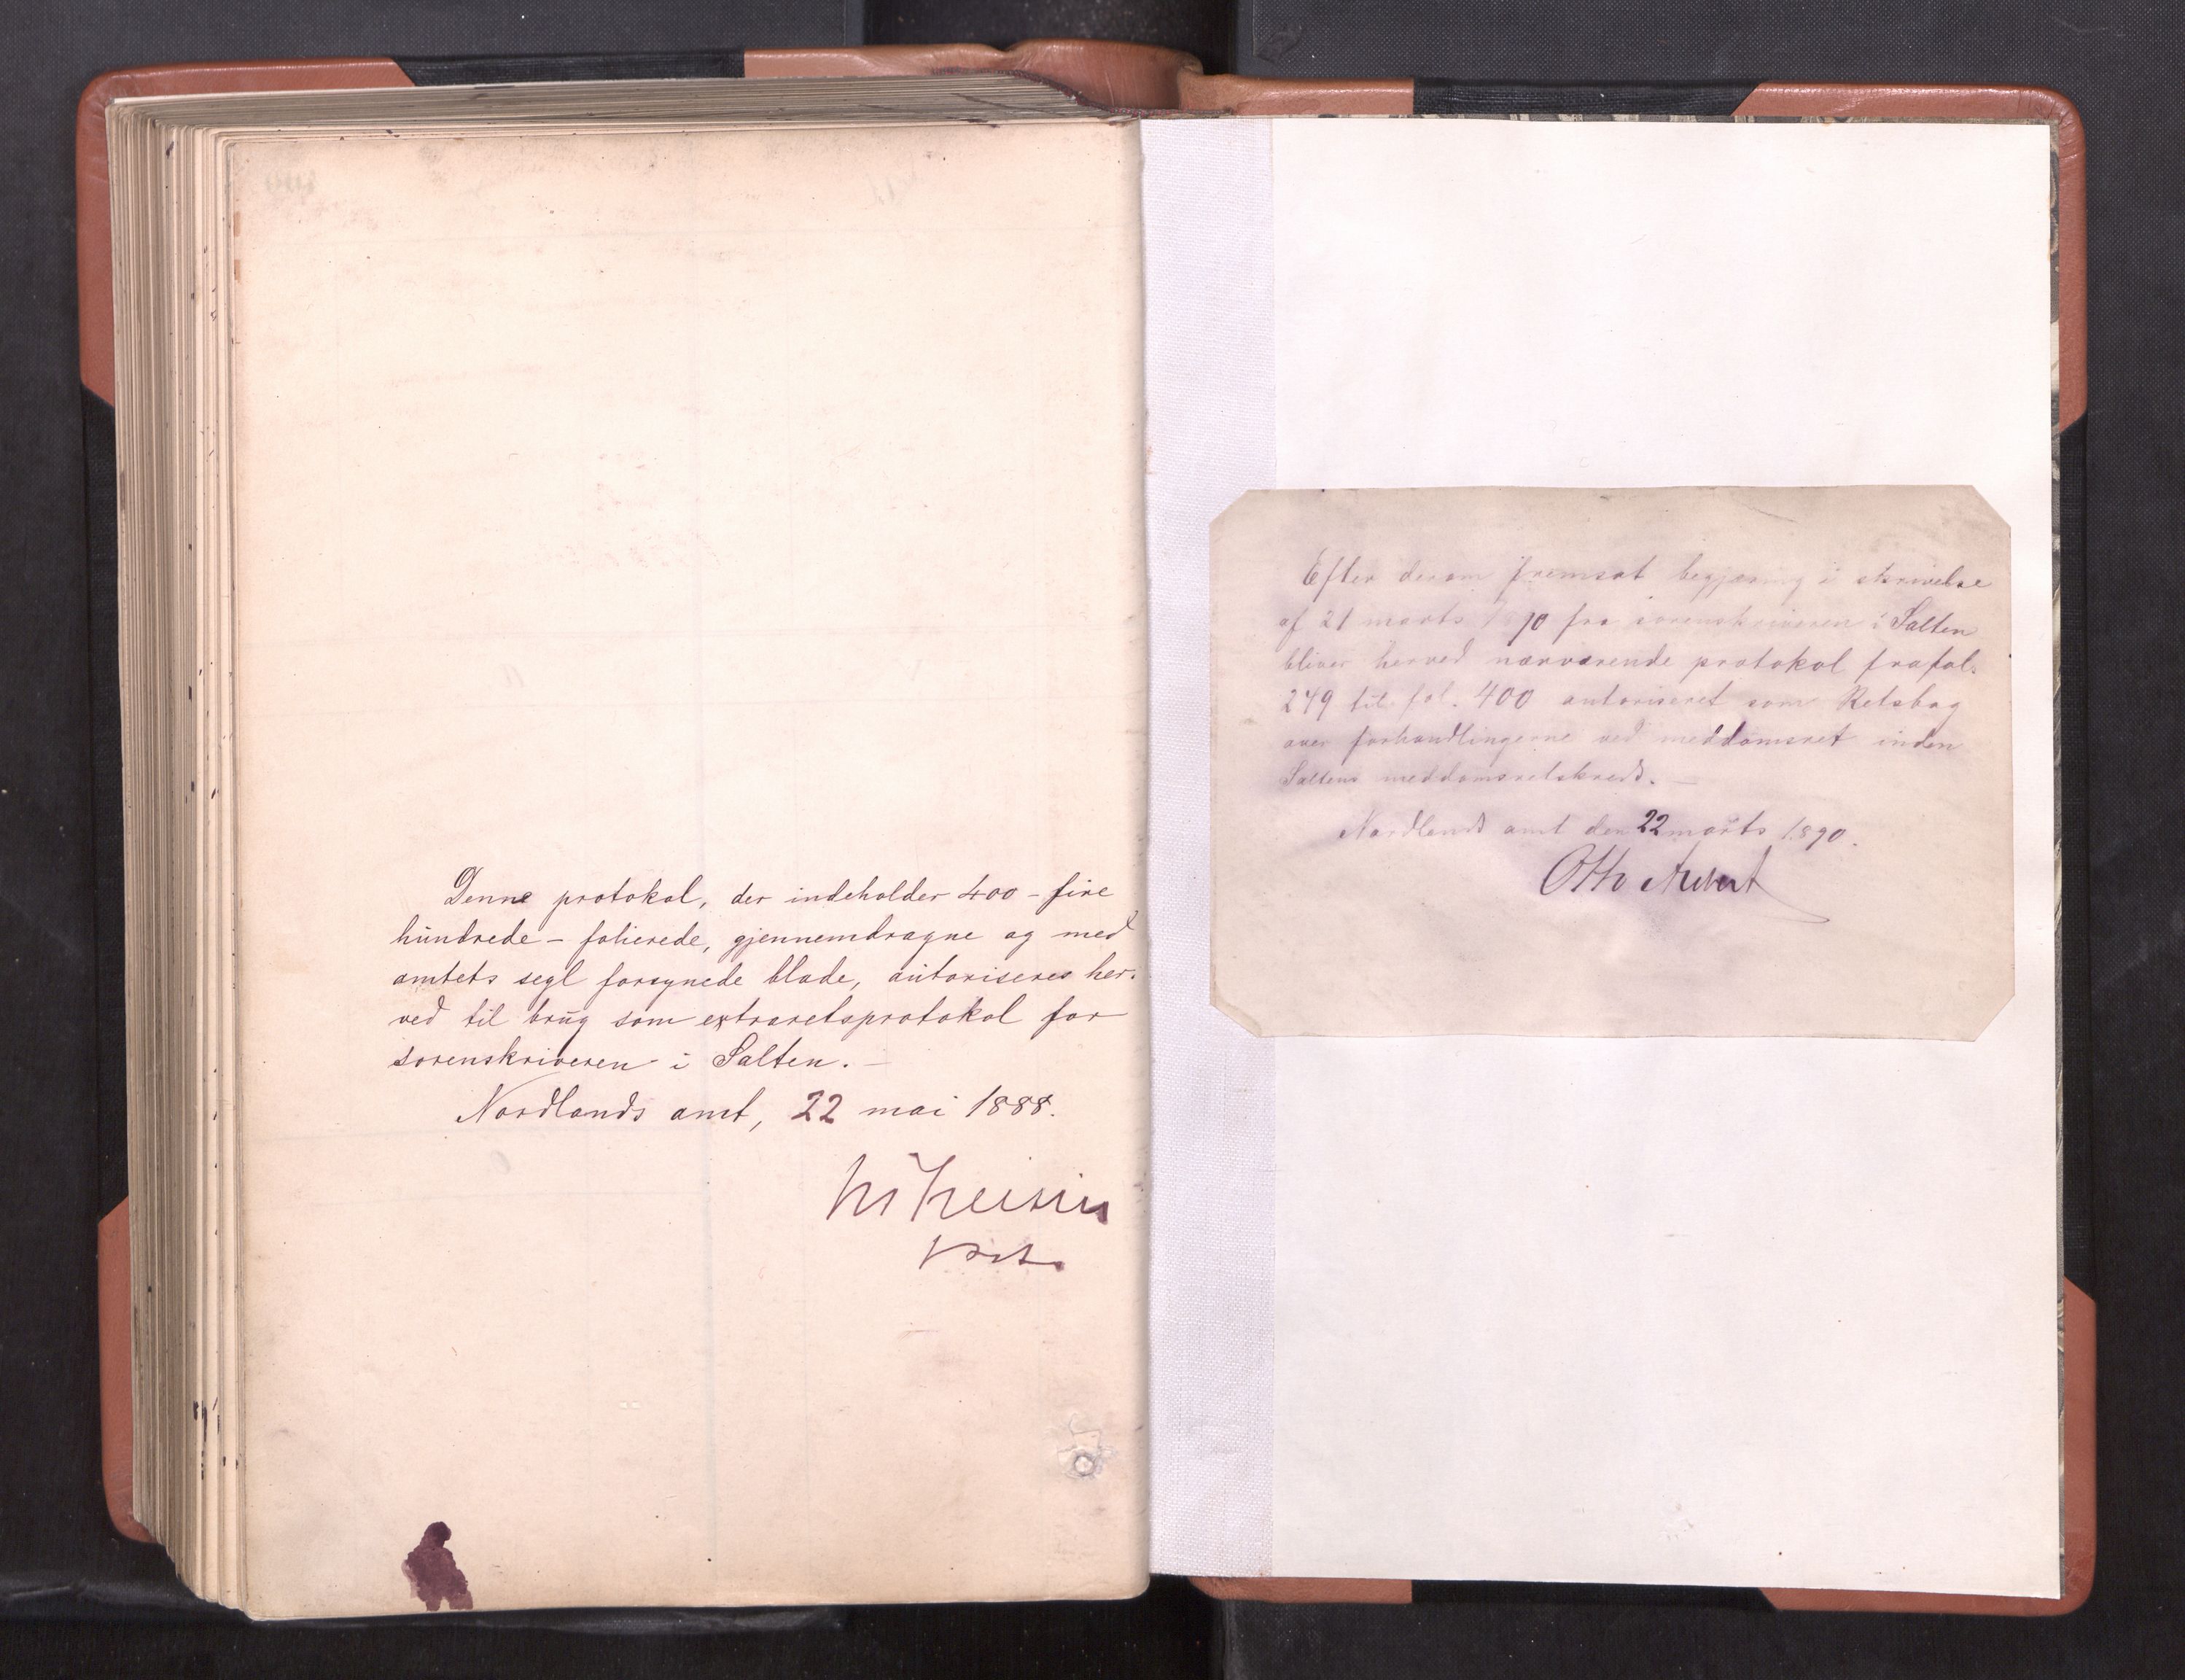 Denne protokol, der indeholder 400 – fire
hundrede – folierede, gjennemdragne og med
amtets segl forsynede blade, autoriseres her-
ved til brug som extraretsprotokol for
sorenskriveren i Salten. –
Nordlands amt, 22 mai 1888.
Efter derom fremsat begjæring i skrivelse
af 21 marts 1890 fra sorenskriveren i Salten
bliver herved nærværende protokol fra fol.
249 til fol. 400 autoriseret som Retsbog
over forhandlingerne ved meddomsret inden
Saltens meddomsretskreds. –
Nordlands amt den 22 marts 1890.
Otto